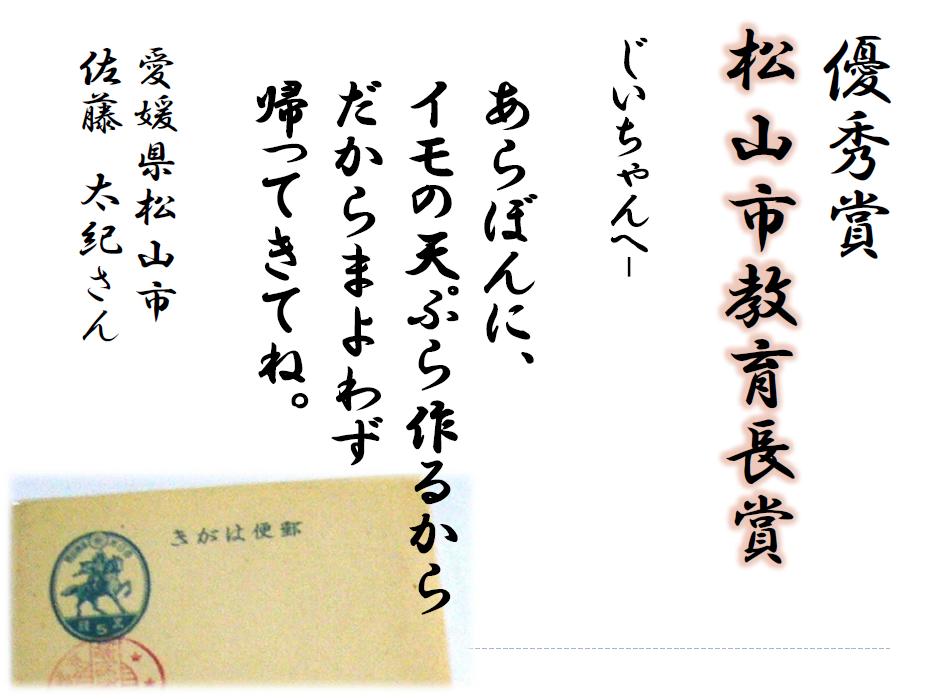 優秀賞
松山市教育長賞
じいちゃんへー
あらぼんに、
イモの天ぷら作るから
だからまよわず
帰ってきてね。
愛媛県松山市
佐藤 太紀さん
きがは便郵